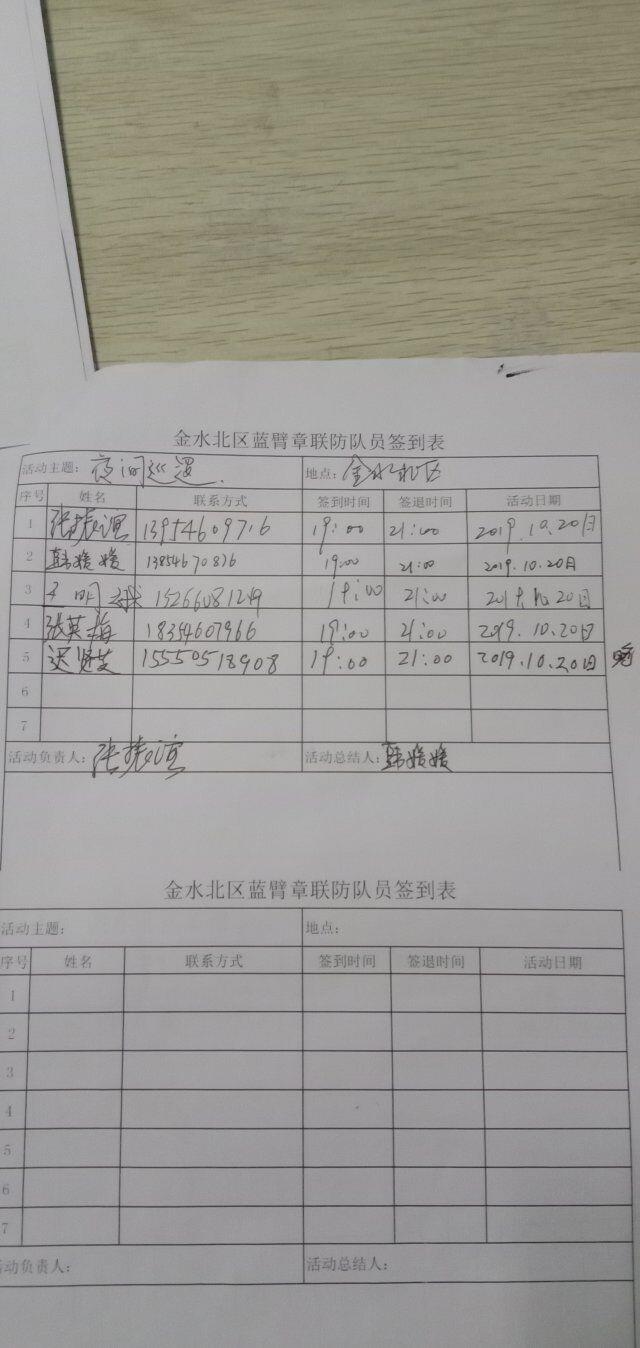 金水北区蓝臂章联防队员签到表
活动主题: 夜间巡逻. 地点: 金水北区
序号 姓名 联系方式 签到时间 签退时间 活动日期
1 张振谊 13954609716 19:00 21:00 2019.10.20日
2 韩媛媛 13854670816 19:00 21:00 2019.10.20日
3 15266081249 19:00 21:00 2019.10.20日
4 张英梅 18354607966 19:00 21:00 2019.10.20日
5 迟贤芝 15550518908 19:00 21:00 2019.10.20日
6
7
活动负责人: 张振谊 活动总结人: 韩媛媛
金水北区蓝臂章联防队员签到表
活动主题: 地点:
序号 姓名 联系方式 签到时间 签退时间 活动日期
1
2
3
4
5
6
7
活动负责人: 活动总结人: